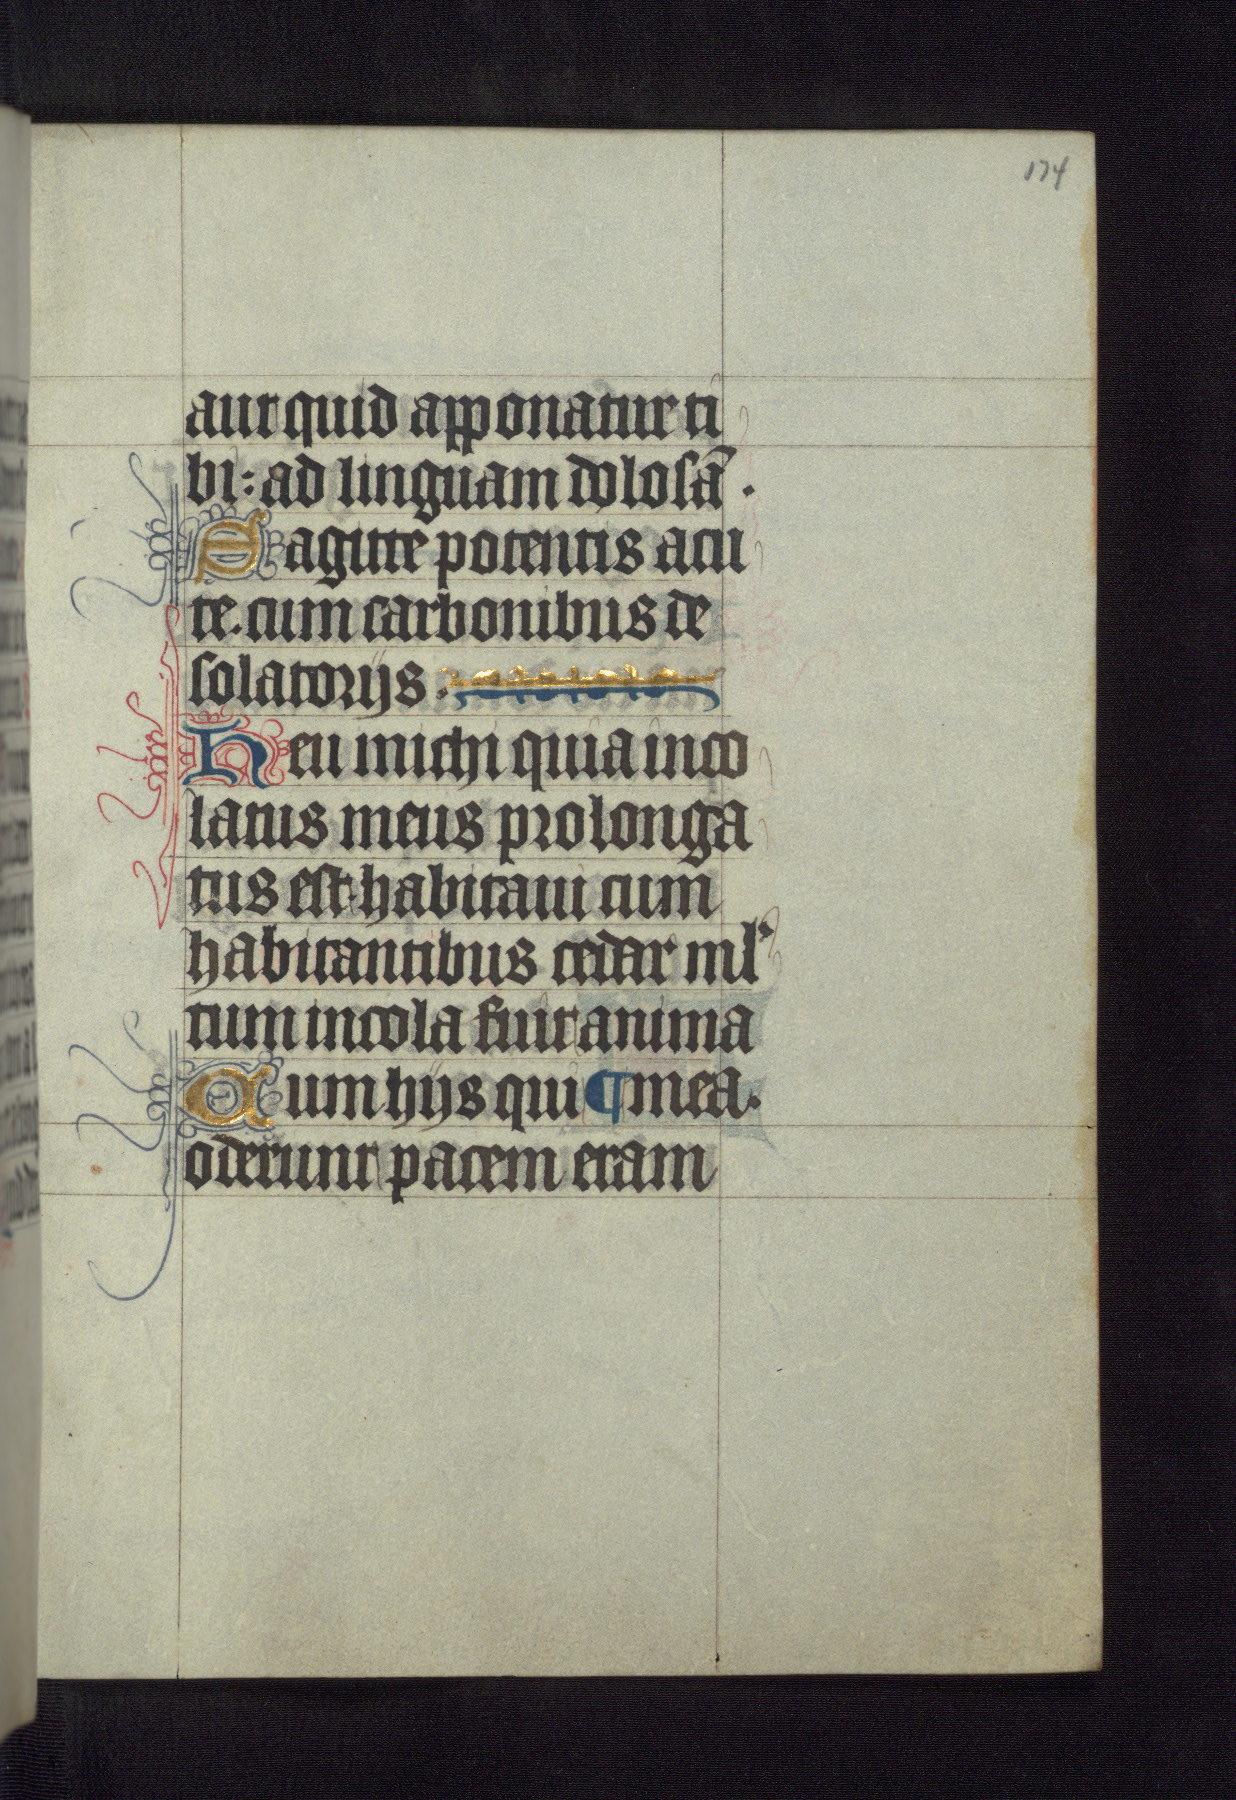 174
aut quid apponatur ti
bi: ad linguam dolosã.
Sagitte potentis acu
te. cum carbonibus de
solatorijs.
Heu michi quia inco
latus meus prolonga
tus est habitaui cum
habitantibus cedar ml'
tum incola fuit anima
Cum hijs qui ¶ mea.
oderunt pacem eram